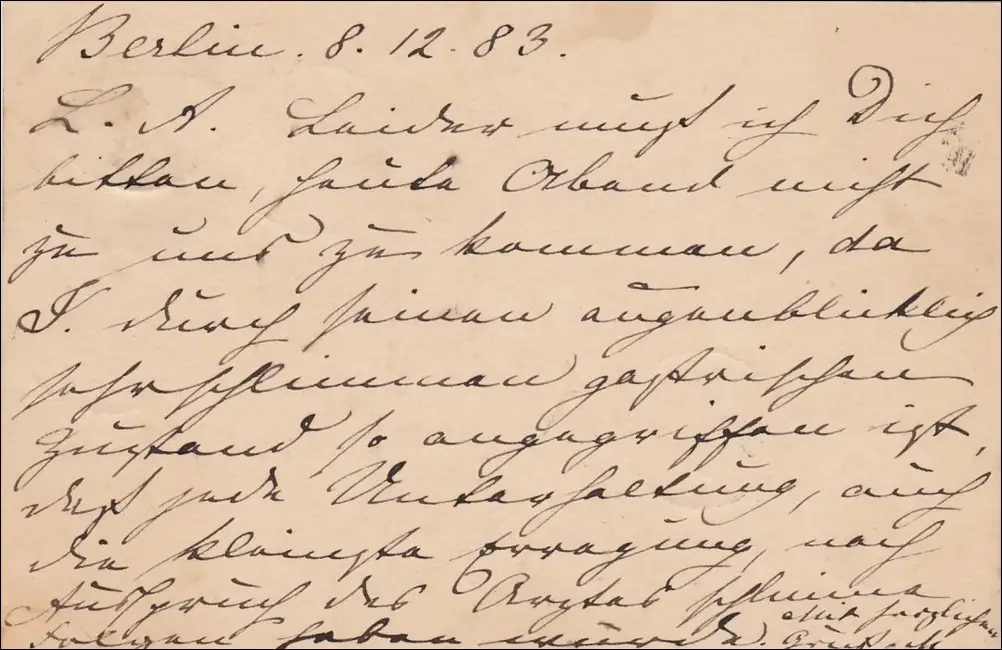 Berlin. 8. 12. 83.
L. A. Leider muß ich Dich
bitten, heute Abend nicht
zu uns zu kommen, da
J. durch seinen augenblicklich
sehr schlimmen gastrischen
Zustand so angegriffen ist,
daß jede Unterhaltung, auch
die kleinste Erregung, nach
Ausspruch des Arztes schlimme
Folgen haben würde. Mit herzlichen